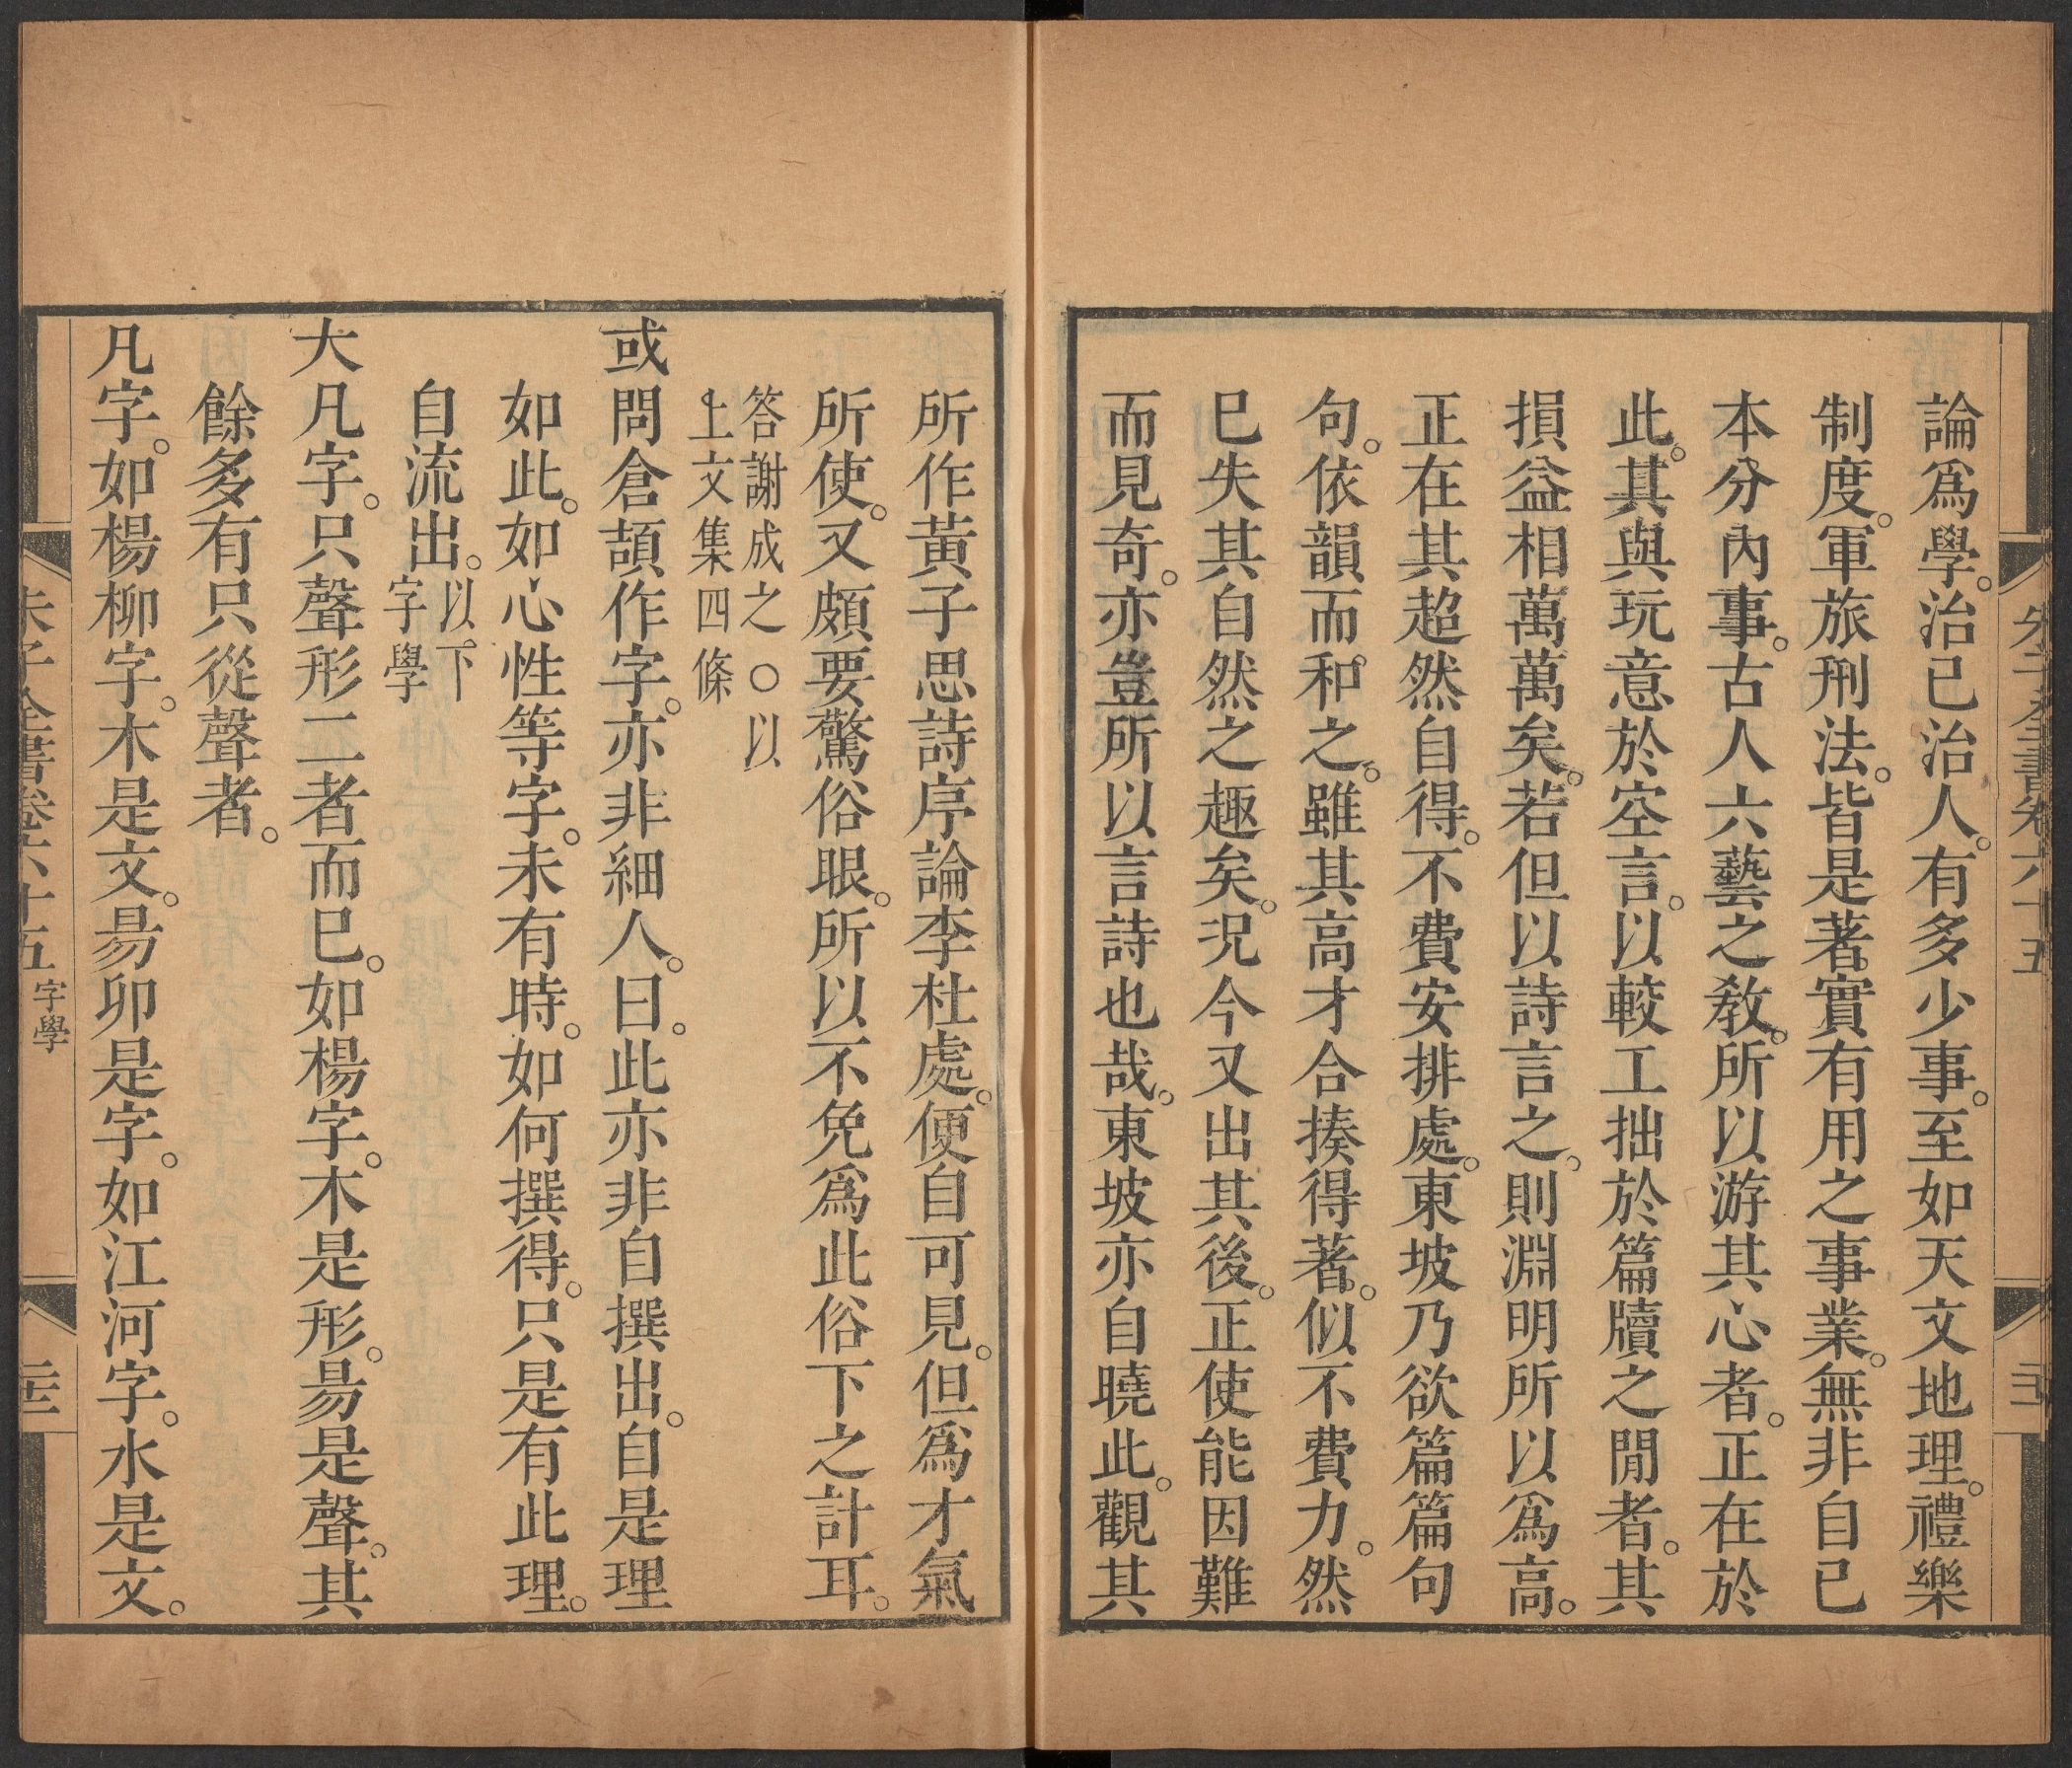 論爲學。治己治人。有多少事。至如天文地理。禮樂
制度。軍旅刑法。皆是著實有用之事業。無非自己
本分內事。古人六藝之敎。所以游其心者。正在於
此。其與玩意於空言。以較工拙於篇牘之閒者。其
損益相萬萬矣。若但以詩言之。則淵明所以爲高。
正在其超然自得。不費安排處。東坡乃欲篇篇句
句。依韻而和之。雖其高才合揍得著。似不費力。然
已失其自然之趣矣。況今又出其後。正使能因難
而見奇。亦豈所以言詩也哉。東坡亦自曉此。觀其
所作黃子思詩序論李杜處。便自可見。但爲才氣
所使。又頗要驚俗眼。所以不免爲此俗下之計耳。
答謝成之○以
上文集四條
或問倉頡作字。亦非細人。曰。此亦非自撰出。自是理
如此。如心性等字。未有時。如何撰得。只是有此理。
自流出。以下
字學
大凡字。只聲形二者而已。如楊字。木是形。昜是聲。其
餘多有只從聲者。
凡字。如楊柳字。木是文。昜卯是字。如江河字。水是文。
朱子全書卷六十五 字學